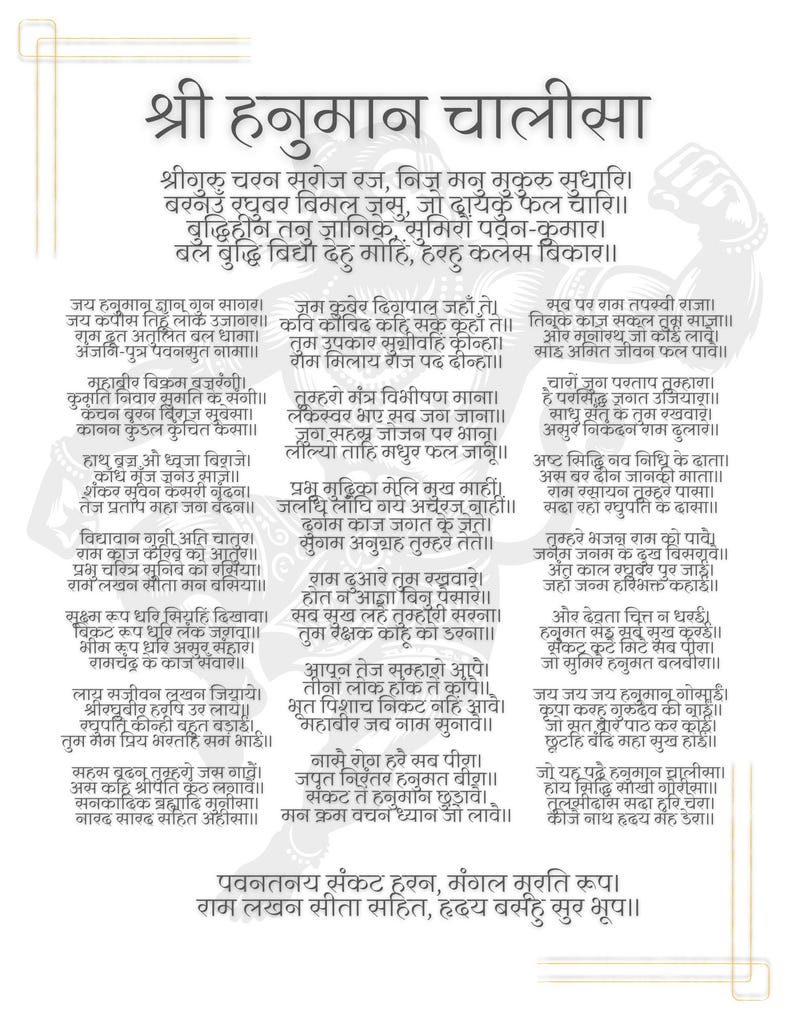 श्री हनुमान चालीसा
श्रीगुरु चरन सरोज रज, निज मनु मुकुरु सुधारि।
बरनउँ रघुबर बिमल जसु, जो दायकु फल चारि॥
बुद्धिहीन तनु जानिके, सुमिरौं पवन-कुमार।
बल बुद्धि बिद्या देहु मोहिं, हरहु कलेस बिकार॥
जय हनुमान ज्ञान गुन सागर।
जय कपीस तिहुँ लोक उजागर॥
राम दूत अतुलित बल धामा।
अंजनि-पुत्र पवनसुत नामा॥
महाबीर बिक्रम बजरंगी।
कुमति निवार सुमति के संगी॥
कंचन बरन बिराज सुबेसा।
कानन कुंडल कुंचित केसा॥
हाथ बज्र औ ध्वजा बिराजे।
काँधे मूँज जनेउ साजे॥
शंकर सुवन केसरी नंदन।
तेज प्रताप महा जग बंदन॥
विद्यावान गुनी अति चातुर।
राम काज करिबे को आतुर॥
प्रभु चरित्र सुनिबे को रसिया।
राम लखन सीता मन बसिया॥
सूक्ष्म रूप धरि सियहिं दिखावा।
बिकट रूप धरि लंक जरावा॥
भीम रूप धरि असुर संहारे।
रामचंद्र के काज संवारे॥
लाय सजीवन लखन जियाये।
श्रीरघुबीर हरषि उर लाये॥
रघुपति कीन्ही बहुत बड़ाई।
तुम मम प्रिय भरतहि सम भाई॥
सहस बदन तुम्हरो जस गावैं।
अस कहि श्रीपति कंठ लगावैं॥
सनकादिक ब्रह्मादि मुनीसा।
नारद सारद सहित अहीसा॥
जम कुबेर दिगपाल जहाँ ते।
कवि कोबिद कहि सके कहाँ ते॥
तुम उपकार सुग्रीवहिं कीन्हा।
राम मिलाय राज पद दीन्हा॥
तुम्हरो मंत्र विभीषण माना।
लंकेस्वर भए सब जग जाना॥
जुग सहस्र जोजन पर भानू।
लील्यो ताहि मधुर फल जानू॥
प्रभु मुद्रिका मेलि मुख माहीं।
जलधि लाँघि गये अचरज नाहीं॥
दुर्गम काज जगत के जेते।
सुगम अनुग्रह तुम्हरे तेते॥
राम दुआरे तुम रखवारे।
होत न आज्ञा बिनु पैसारे॥
सब सुख लहै तुम्हारी सरना।
तुम रक्षक काहू को डरना॥
आपन तेज सम्हारो आपै।
तीनों लोक हांक तें कांपै॥
भूत पिशाच निकट नहिं आवै।
महाबीर जब नाम सुनावै॥
नासै रोग हरै सब पीरा।
जपत निरंतर हनुमत बीरा॥
संकट तें हनुमान छुड़ावै।
मन क्रम वचन ध्यान जो लावै॥
सब पर राम तपस्वी राजा।
तिनके काज सकल तुम साजा॥
और मनोरथ जो कोई लावै।
सोइ अमित जीवन फल पावै॥
चारों जुग परताप तुम्हारा।
है परसिद्ध जगत उजियारा॥
साधु संत के तुम रखवारे।
असुर निकंदन राम दुलारे॥
अष्ट सिद्धि नव निधि के दाता।
अस बर दीन जानकी माता॥
राम रसायन तुम्हरे पासा।
सदा रहो रघुपति के दासा॥
तुम्हरे भजन राम को पावै।
जनम जनम के दुख बिसरावै॥
अंत काल रघुबर पुर जाई।
जहाँ जन्म हरिभक्त कहाई॥
और देवता चित्त न धरई।
हनुमत सेइ सर्ब सुख करई॥
संकट कटै मिटै सब पीरा।
जो सुमिरै हनुमत बलबीरा॥
जय जय जय हनुमान गोसाईं।
कृपा करहु गुरुदेव की नाईं॥
जो सत बार पाठ कर कोई।
छूटहि बंदि महा सुख होई॥
जो यह पढ़ै हनुमान चालीसा।
होय सिद्धि साखी गौरीसा॥
तुलसीदास सदा हरि चेरा।
कीजै नाथ हृदय मंह डेरा॥
पवनतनय संकट हरन, मंगल मूरति रूप।
राम लखन सीता सहित, हृदय बसहु सुर भूप॥